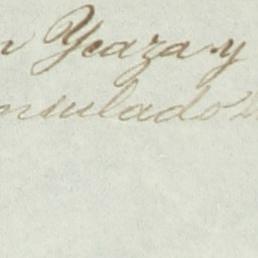 n Ycaza y
nsulado